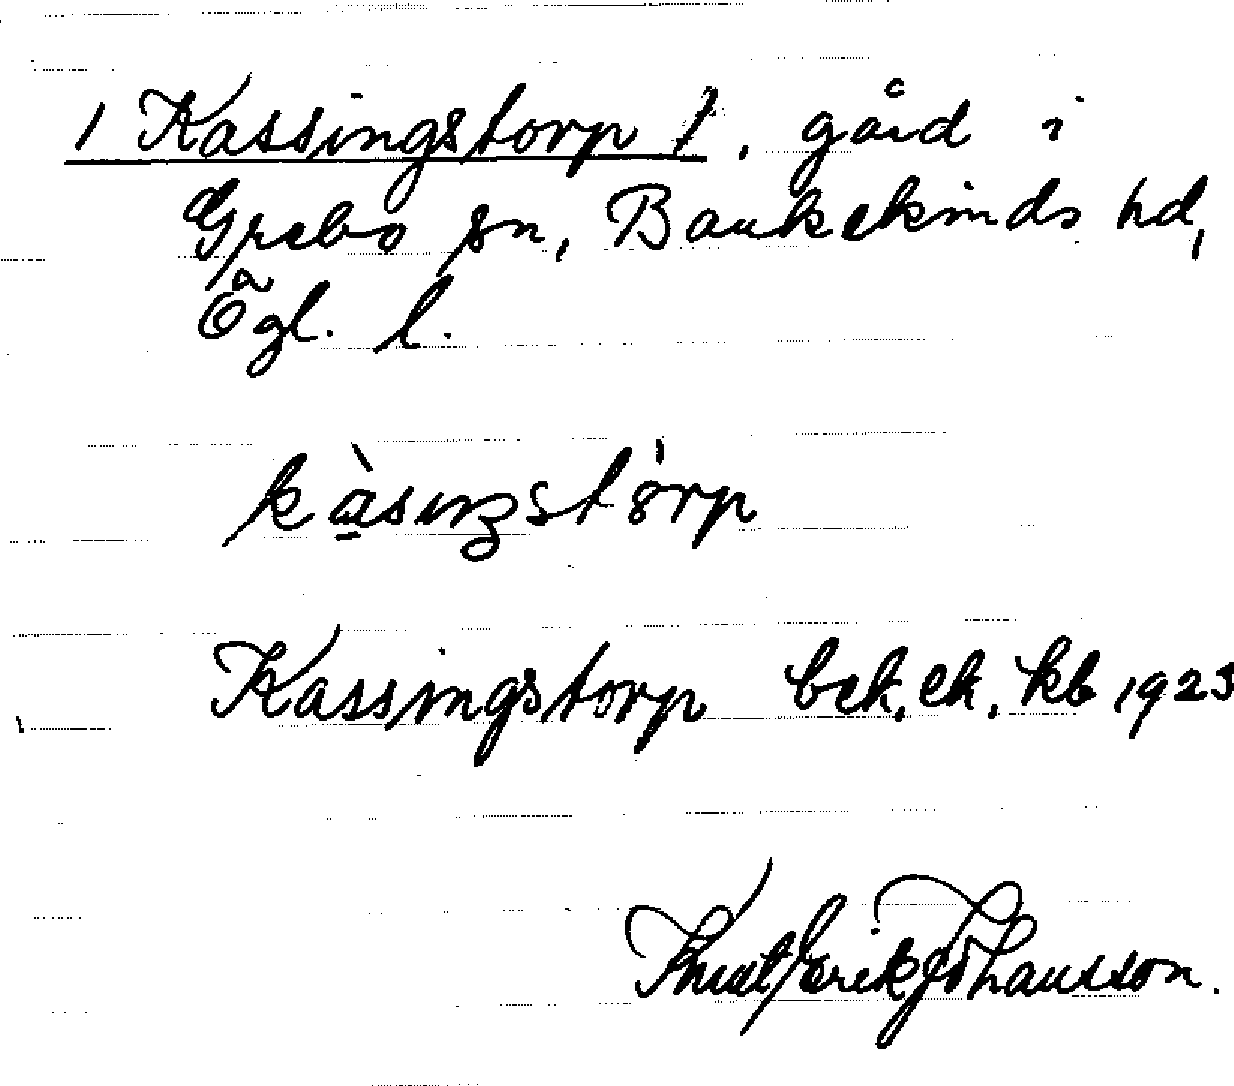 1 Kassingstorp 1, gård i
Grebo sn, Bankekinds hd,
Ögl. l.
kàsıŋstòrp
Kassingstorp bek. ek. kb 1923
Knut Erik Johansson.